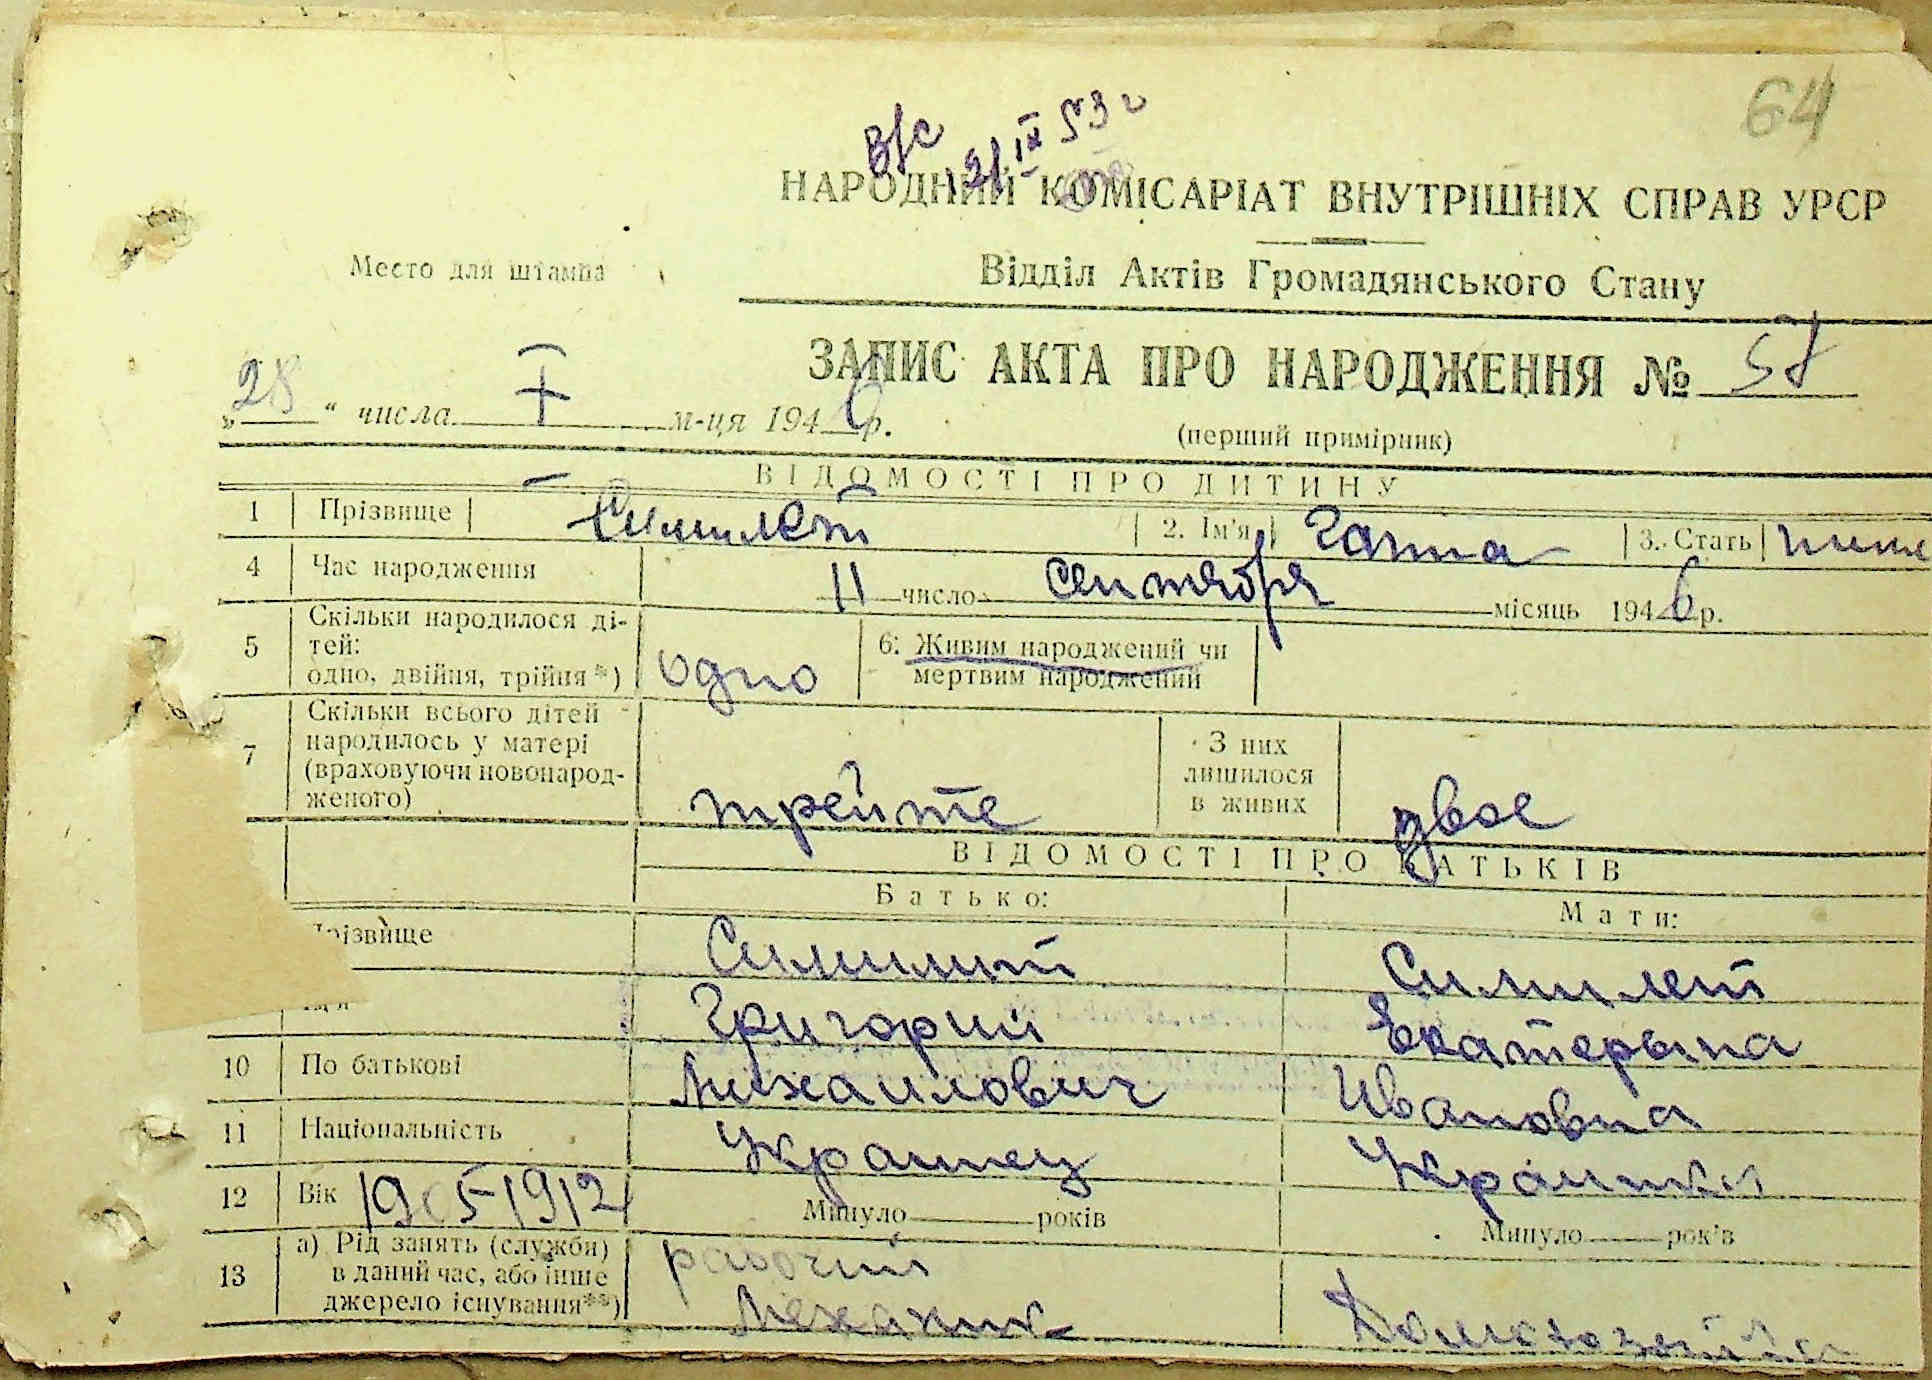 64
в/с 21.IX 53 г
НАРОДНИЙ КОМІСАРІАТ ВНУТРІШНІХ СПРАВ УРСР
Место для штампа
Відділ Актів Громадянського Стану
ЗАПИС АКТА ПРО НАРОДЖЕННЯ № 57
„28“ числа X м-ця 1946 р.
(перший примірник)
ВІДОМОСТІ ПРО ДИТИНУ
1 Прізвище Симилет 2. Ім'я Ганна 3. Стать
4 Час народження 11 число сентября місяць 1946 р.
5 Скільки народилося ді-
тей:
одно, двійня, трійня*) одно 6: Живим народжений чи
мертвим народжений
7 Скільки всього дітей
народилось у матері
(враховуючи новонарод-
женого) трейте З них
лишилося
в живих двое
ВІДОМОСТІ ПРО БАТЬКІВ
Батько: Мати:
Прізвище Симилит Симилет
Ім'я Григорий Екатерына
10 По батькові Михаилович Ивановна
11 Національність Украинец Украинка
12 Вік 1905-1912 Минуло рокiв Минуло років
13 а) Рід занять (служби)
в даний час, або інше
джерело існування**) рабочий
Механик Домохозяйка